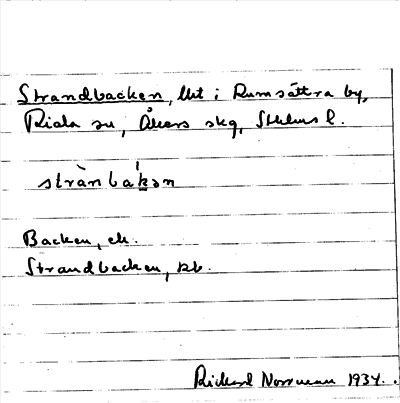 Strandbacken, lht i Rumsättra by,
Riala sn, Åkers skg, Sthlms l.
strànbák̯ən
Backen, ek.
Strandbacken, kb.
Rickard Norrman 1934.